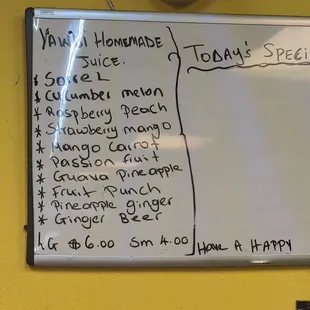 HOMEMADE
JUICE.
* Sorrel
* Cucumber melon
* Raspberry Peach
* Strawberry mango
* Mango Carrot
* Passion fruit
* Guava Pineapple
* Fruit Punch
* Pineapple ginger
* Ginger Beer
LG $6.00 Sm 4.00
TODAY'S SPECI
HAVE A HAPPY